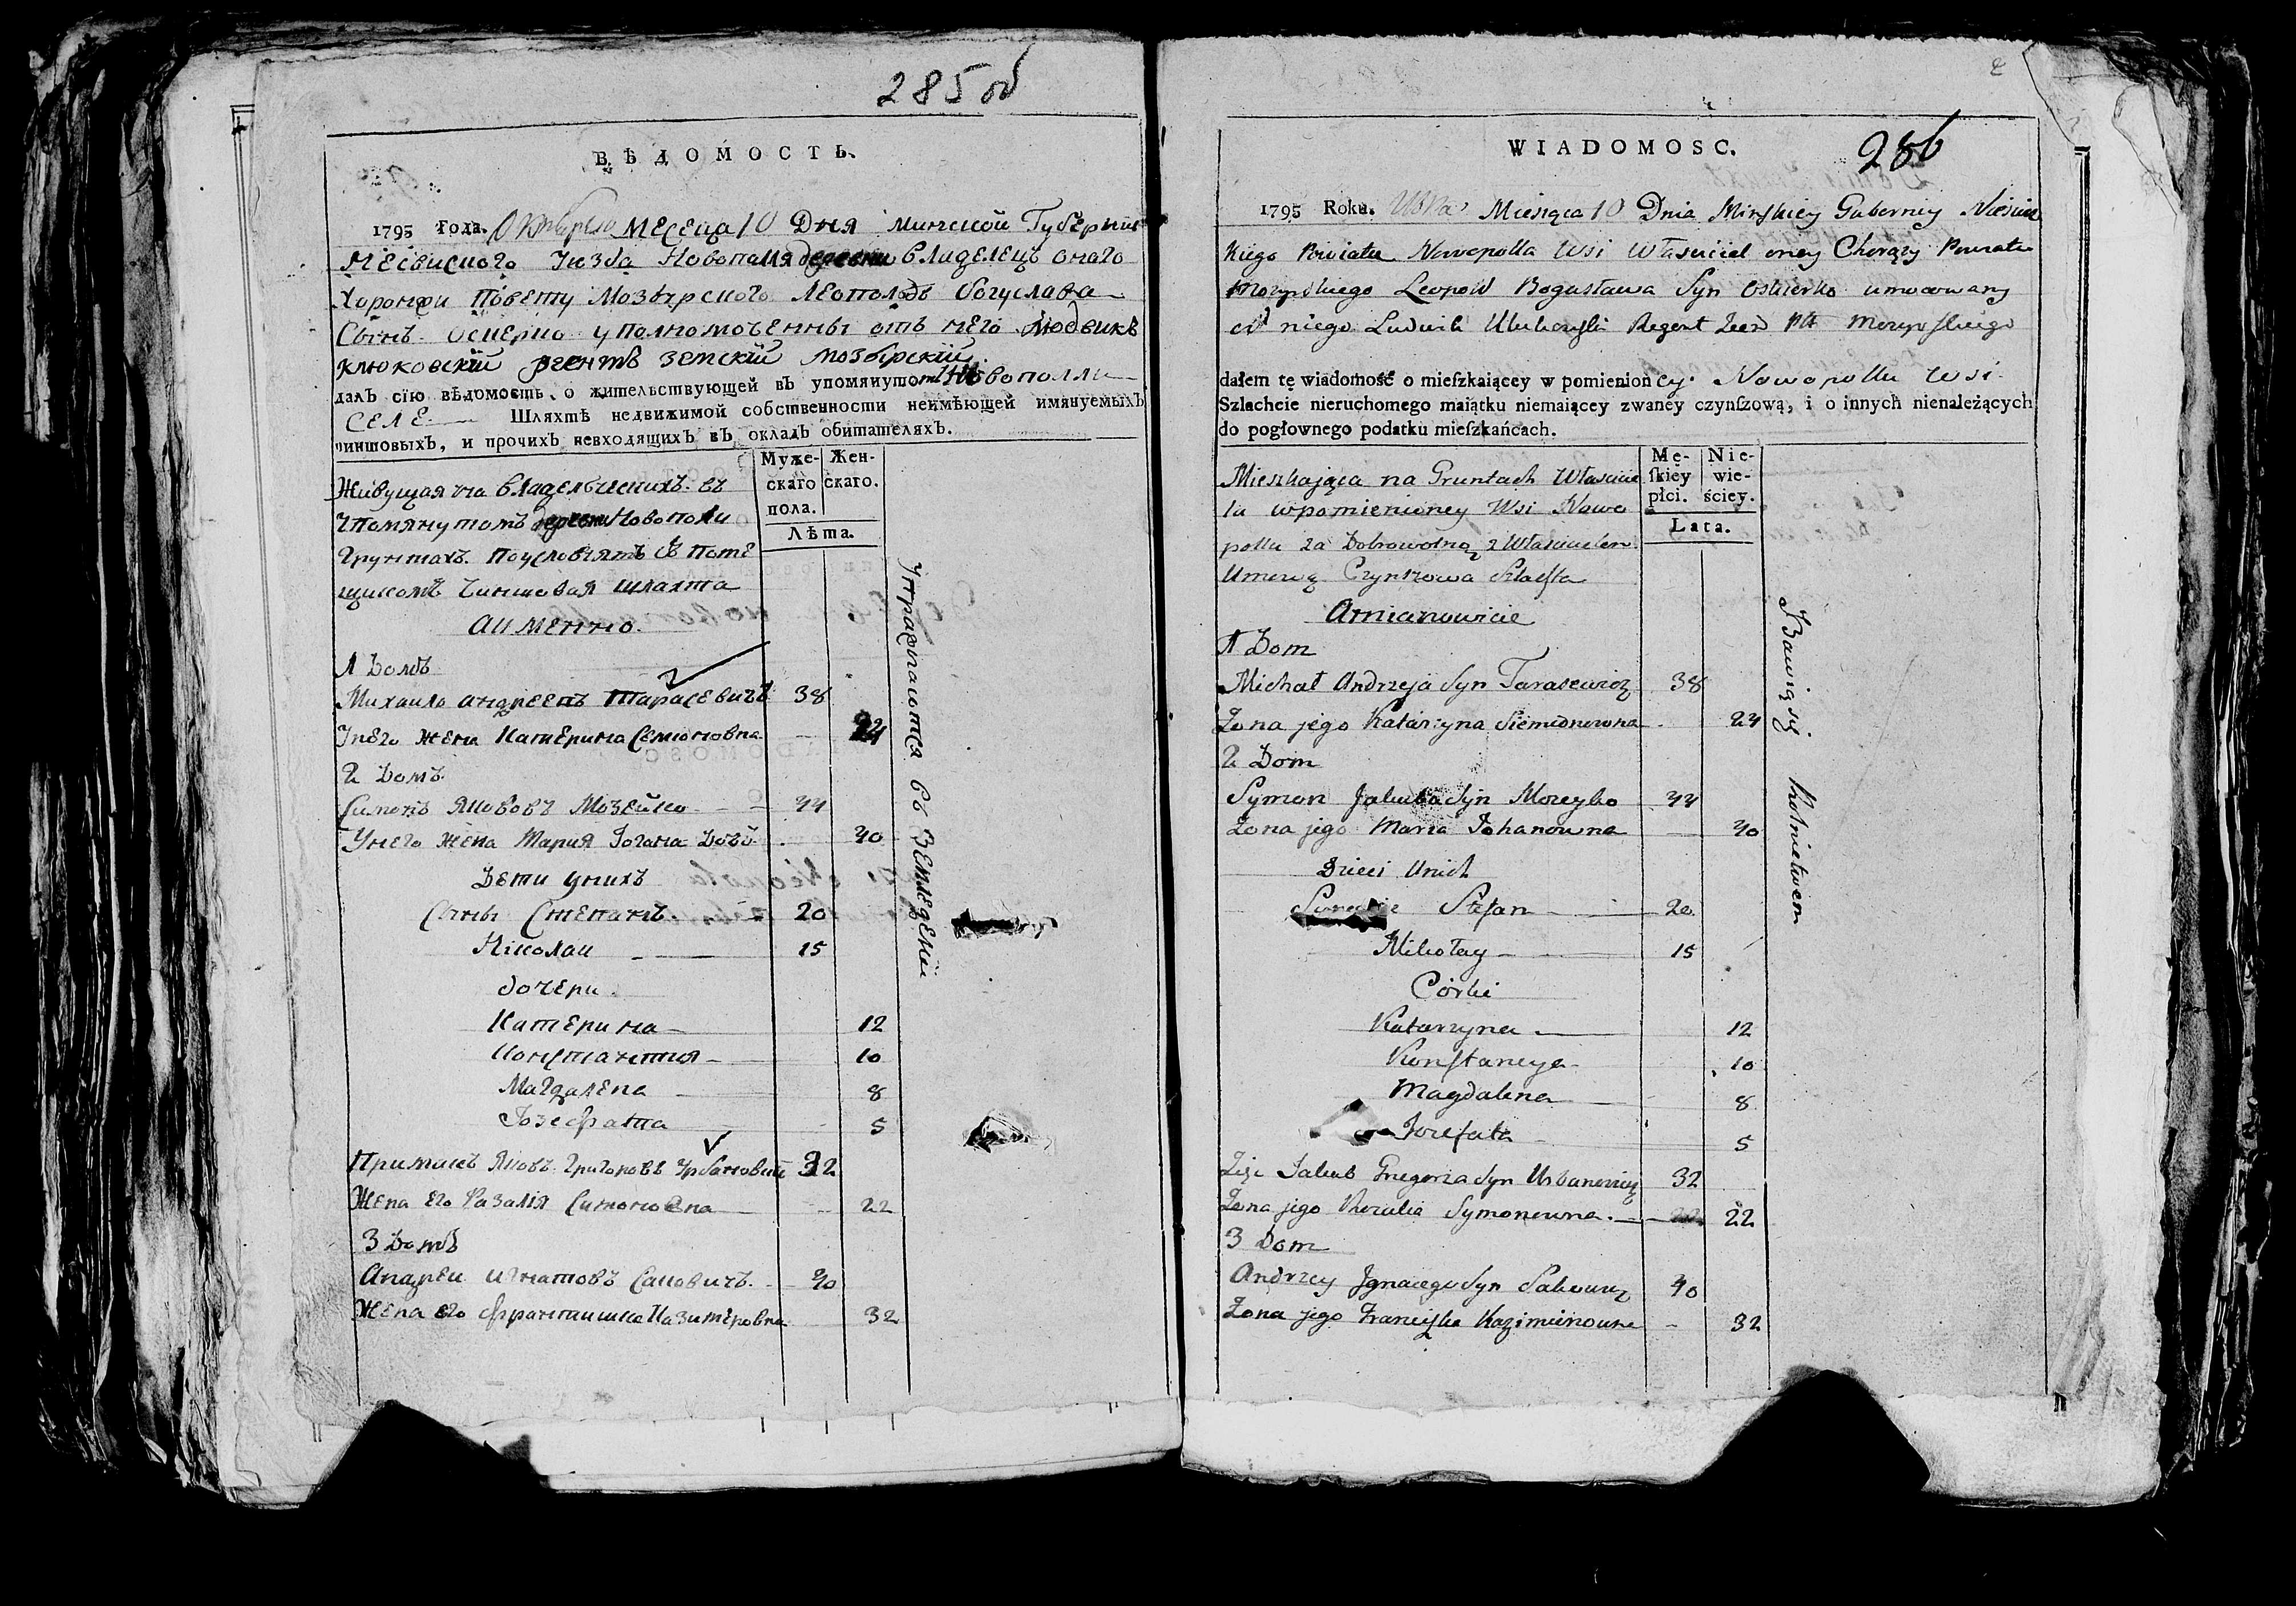 285 об
ВѢДОМОСТЬ.
1795 Года. Октября месеца 10 Дня Минской Губернии
Несвиского уезда Новополля деревни владелецъ оного
Хоронжи Повету Мозырского Леопольдъ Богуслава
Сынъ Оскерко уполномоченны отъ него Людвикъ
Клюковскій регентъ земскій мозырскій.
далъ сїю вѣдомость о жительствующей въ упомянутомъ Новополли
селе Шляхтѣ недвижимой собственности неимѣющей имянуемыхъ
чиншовыхъ, и прочихъ невходящихъ въ окладъ обитателяхъ.
Мужескаго пола. Женскаго.
Лѣта.
Живущая на владельческихъ въ
упомянутомъ деревни Новополи
грунтахъ. По условіямъ съ поме
щикомъ чиншовая шляхта
Аименно.
1 Домъ
Михаило Андреевъ Тарасевичъ 38
Унего жена Катерина Семионовна 24
2 Домъ
Симонъ Якововъ Мозейко 44
Унего жена Мария Іогана 40
Дети унихъ
Сыны Степанъ 20
Николаи 15
дочери
Катерина 12
Константия 10
Магдалена 8
Іозефата 5
Примакъ Яковъ Григоровъ Урбановичъ 32
Жена его Разалія Симоновна 22
3 Домъ
Андреи Игнатовъ Саковичъ 40
Жена его Францишка Казимѣровна 32
Упражняются въ Земледеліи
286
WIADOMOSC.
1795 Roku. Miesiąca 10 Dnia Minskiey Guberniy Nieswis
kiego Powiatu Nowopolla Wsi Własciciel oney Chorąży Powiatu
Mozyrskiego Leopold Bogusława Syn Oskierko umocowany
od niego Ludwik Klukowski Regent Mozyrskiego
dałem tę wiadomość o mieſzkaiącey w pomienioney Nowopollu Wsi
Szlachcie nieruchomego maiątku niemaiącey zwaney czynſzową, i o innych nienależących
do pogłownego podatku mieſzkańcach.
Męſkiey płci. Niewieściey.
Lata.
Mieszkająca na Gruntach Własciciela
wpomienioney Wsi Nowo
pollu za Dobrowolną z Włascicielem
Umową Czynszowa Szlachta
Amianowicie
1 Dom
Michał Andrzeja Syn Tarasewicz 38
Żona jego Katarzyna Siemionowna 24
2 Dom
Symon Jakuba Syn Mozeyko 44
Żona jego Maria Johanowna 40
Dzieci Unich
Synowie Stefan 20
Mikołay 15
Córki
Katarzyna 12
Konstancya 10
Magdalena 8
Jozefata 5
Zięć Jakub Gregorza Syn Urbanowicz 32
Żona jego Rozalia Symonowna 22
3 Dom
Andrzey Jgnacego Syn Sakowicz 40
Żona jego Franciszka Kazimierowna 32
Bawią się Rolnictwem